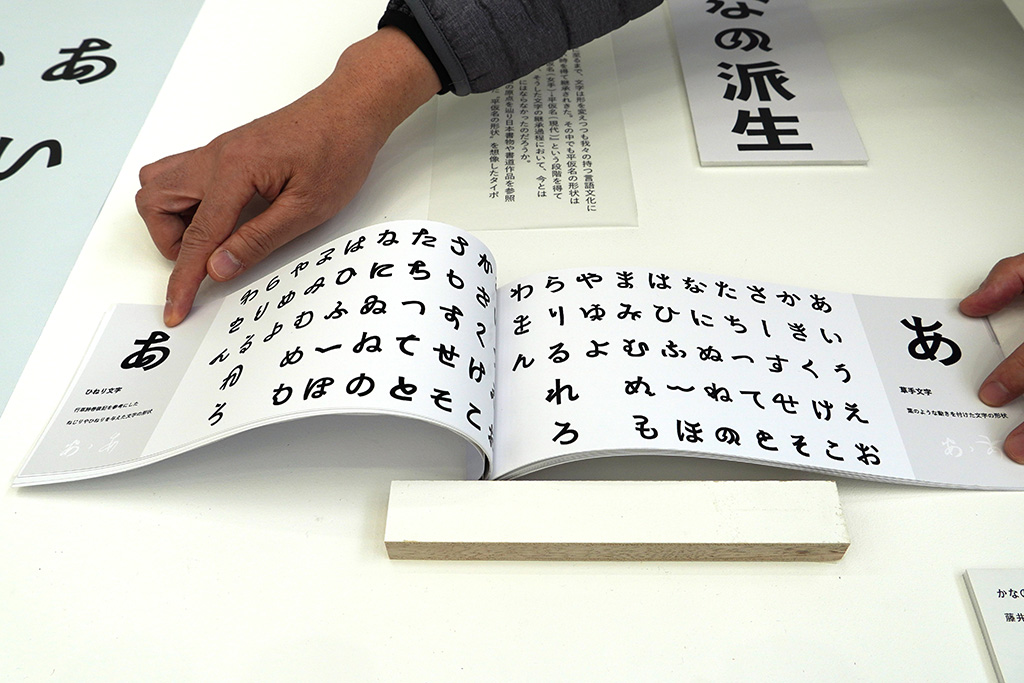 あ
い
なの派生
るまで、文字は形を変えつつも我々の持つ言語文化に
時を得て継承されきた。その中でも平仮名の形状は
名(女手)―平仮名(現代)という段階を得て
そうした文字の継承過程において、今とは
にはならなかったのだろうか。
の原点を辿り日本書物や書道作品を参照
“平仮名の形状”を想像したタイポ
あ
ひねり文字
ねじりやひねりを与えた文字の形状
かきくけこ
さしすせそ
たちつてと
なにぬねの
はひふへほ
まみむめも
やゆよ
らりるれろ
わをん
あいうえお
かきくけこ
さしすせそ
たちつてと
なにぬねの
はひふへほ
まみむめも
やゆよ
らりるれろ
わをん
あ
草手文字
葉のような動きを付けた文字の形状
かな
藤井